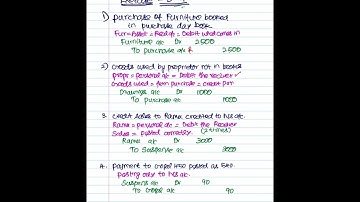 1) purchase of Furniture booked
in purchase day book
Furn = Asset = Real a/c = Debit what comes in
Furniture a/c Dr 2500
To purchase a/c 2500
2) Goods used by proprietor not in books
propr = personal a/c = Debit the receiver
Goods used = from purchase = credit pur
Drawings a/c Dr 1000
To purchase a/c 1000
3. Credit sales to Rama credited to his a/c.
Rama = personal a/c = Debit the Receiver
Sales = posted correctly (2 times)
Rama a/c Dr 3000
To Suspense a/c 3000
4. payment to Gopal 1450 posted as 540
posting only to his a/c.
Suspense a/c Dr 90
To Gopal a/c 90